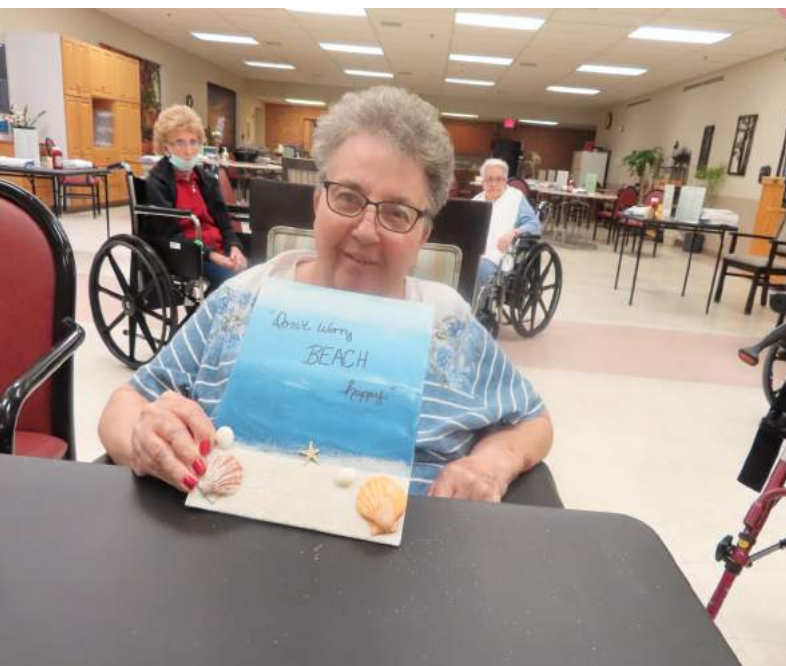 "Don't Worry
BEACH
happy"